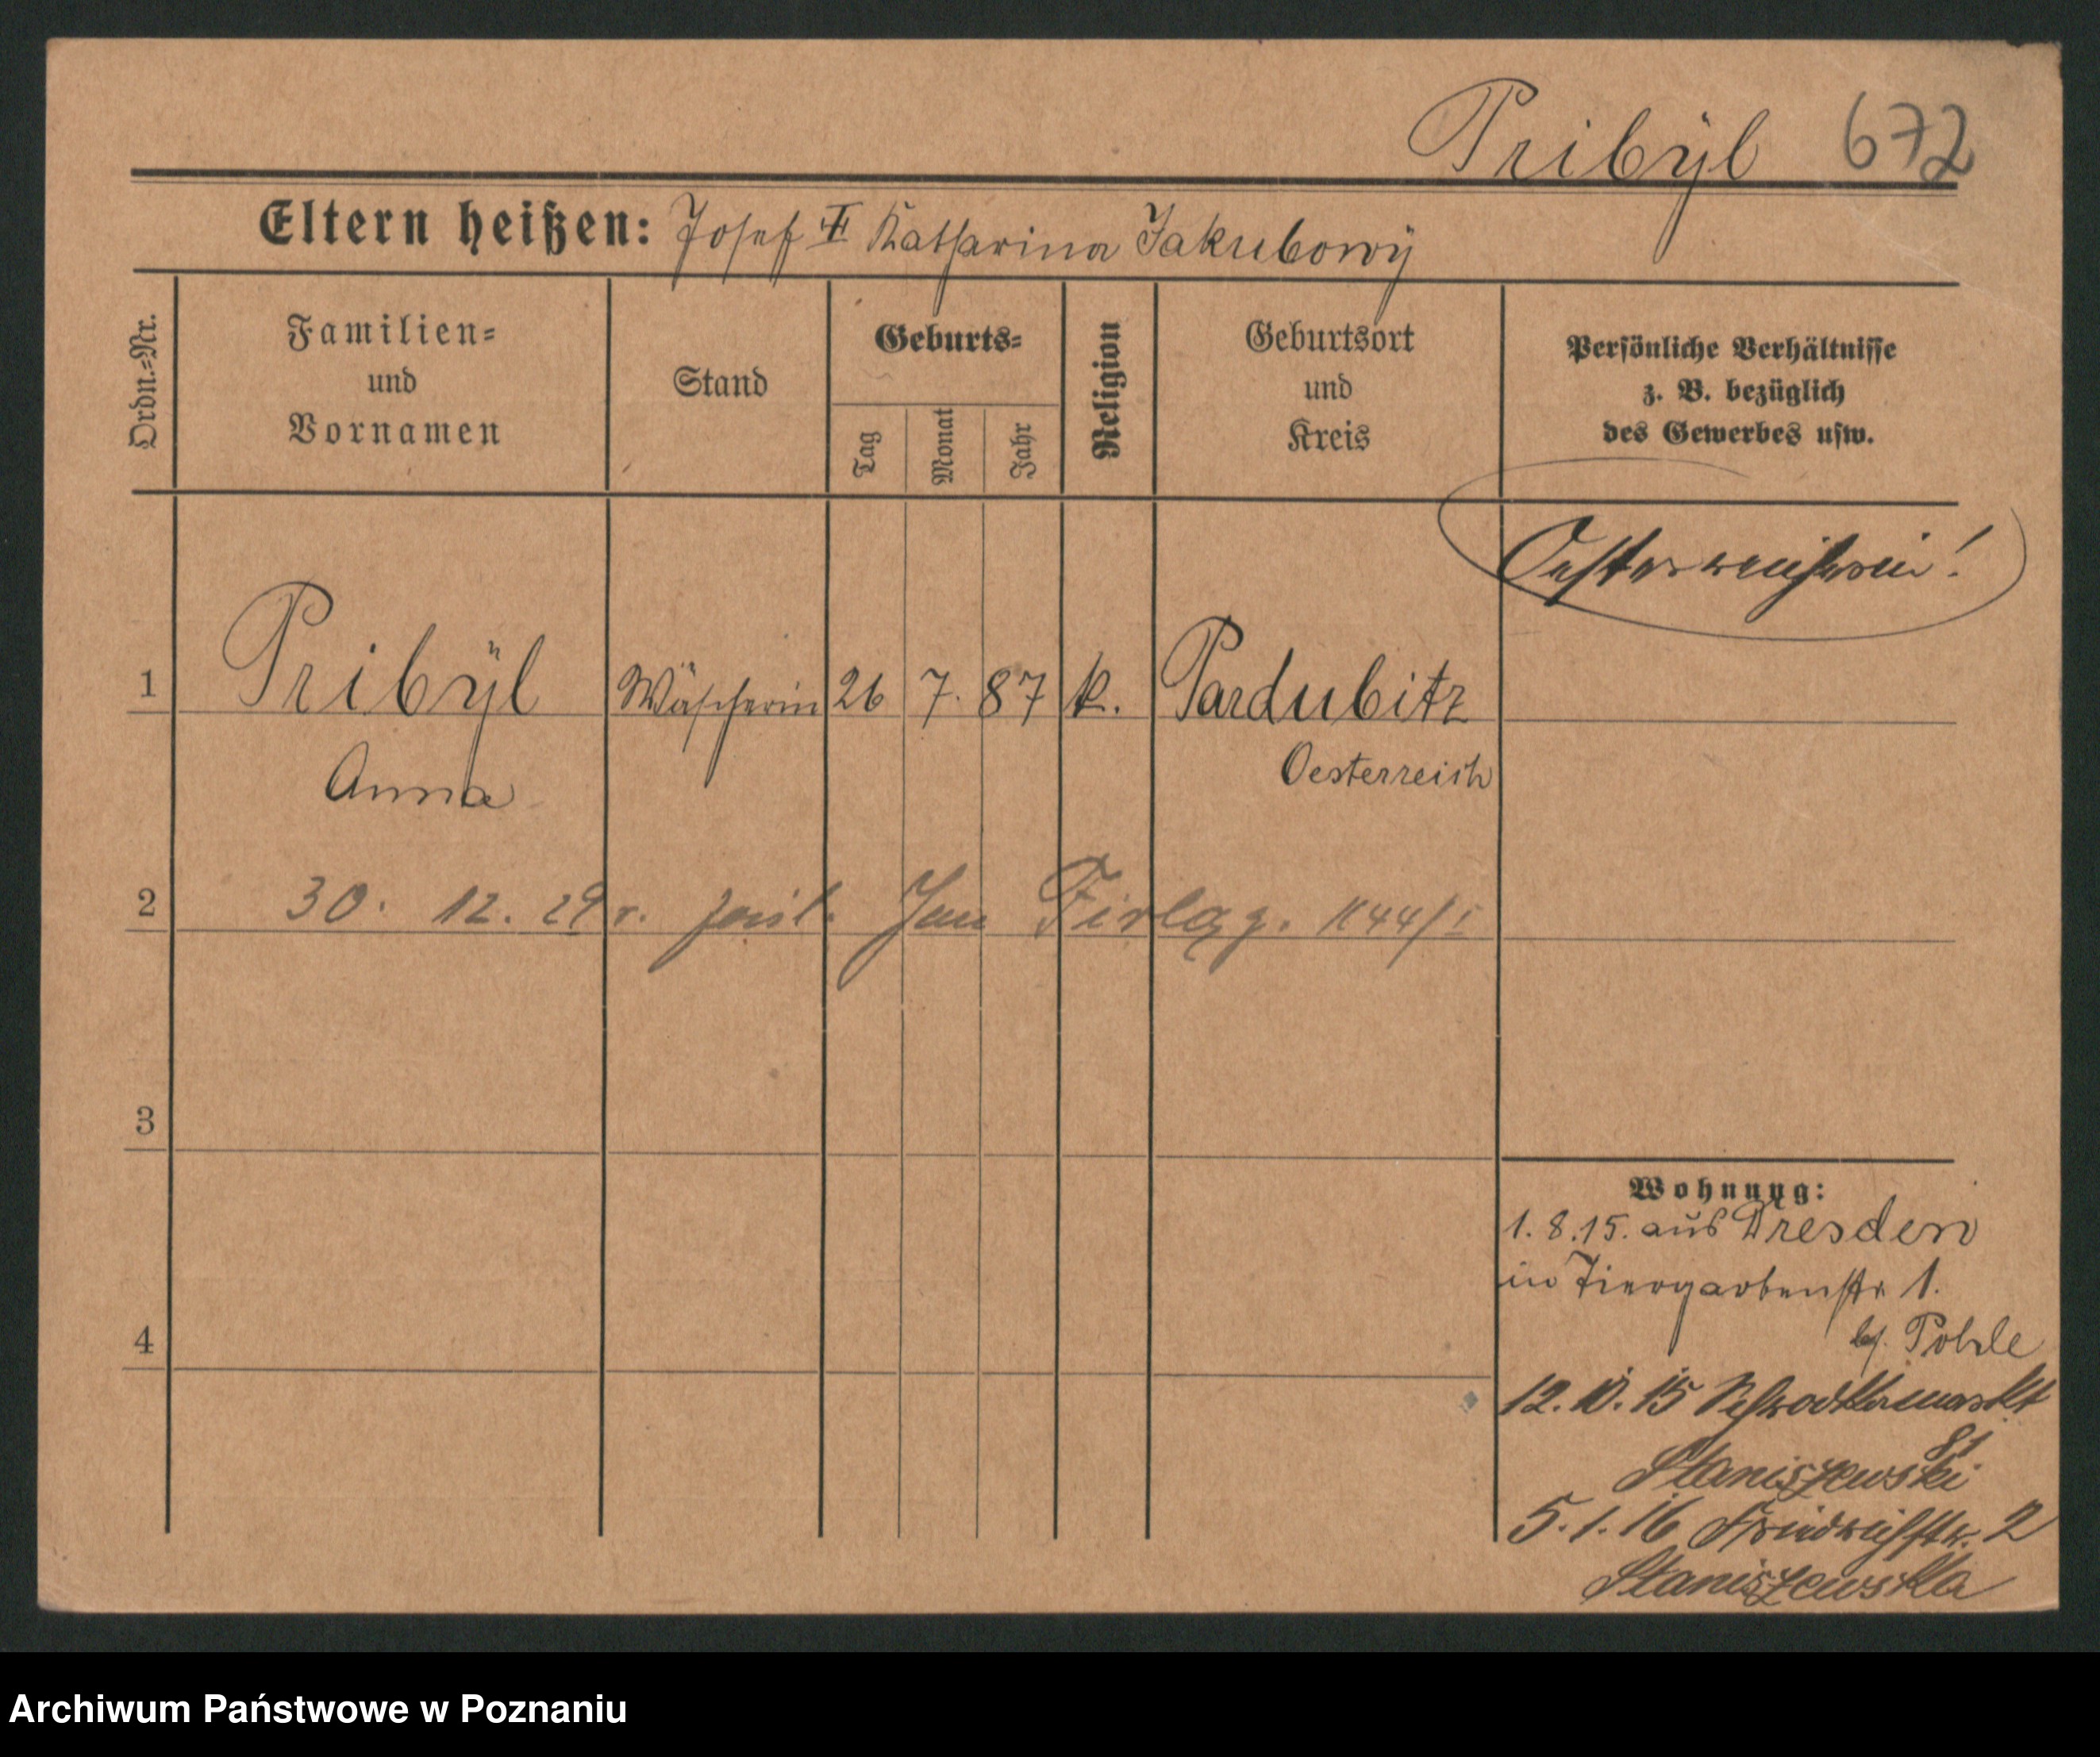 Pribÿl 672
Eltern heißen: Josef II Katharina Jakubowÿ
Ordn.=Nr.
Familien=
und
Vornamen
Stand
Geburts=
Tag
Monat
Jahr
Religion
Geburtsort
und
Kreis
Persönliche Verhältnisse
z. B. bezüglich
des Gewerbes usw.
Oesterreicherin!
1 Pribÿl Wäscherin 26 7. 87 k. Pardubitz
Anna Oesterreich
2 30. 12. 29 r. Jan 1144/I
3
4
Wohnung:
1. 8. 15. aus Dresden
in Tiergartenstr 1.
bei Pohle
12. 10. 15 Schrodkamarkt
81
Staniszewski
5. 1. 16 Friedrichstr. 2
Staniszewska
Archiwum Państwowe w Poznaniu